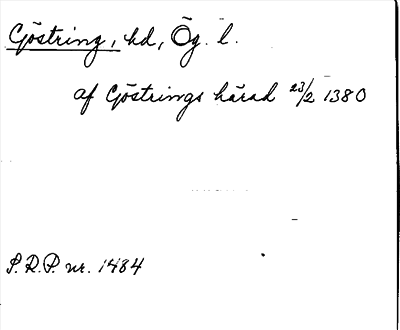 Göstring, hd, Ög. l.
af Göstrings härad 23/2 1380
S.R.P. nr. 1484